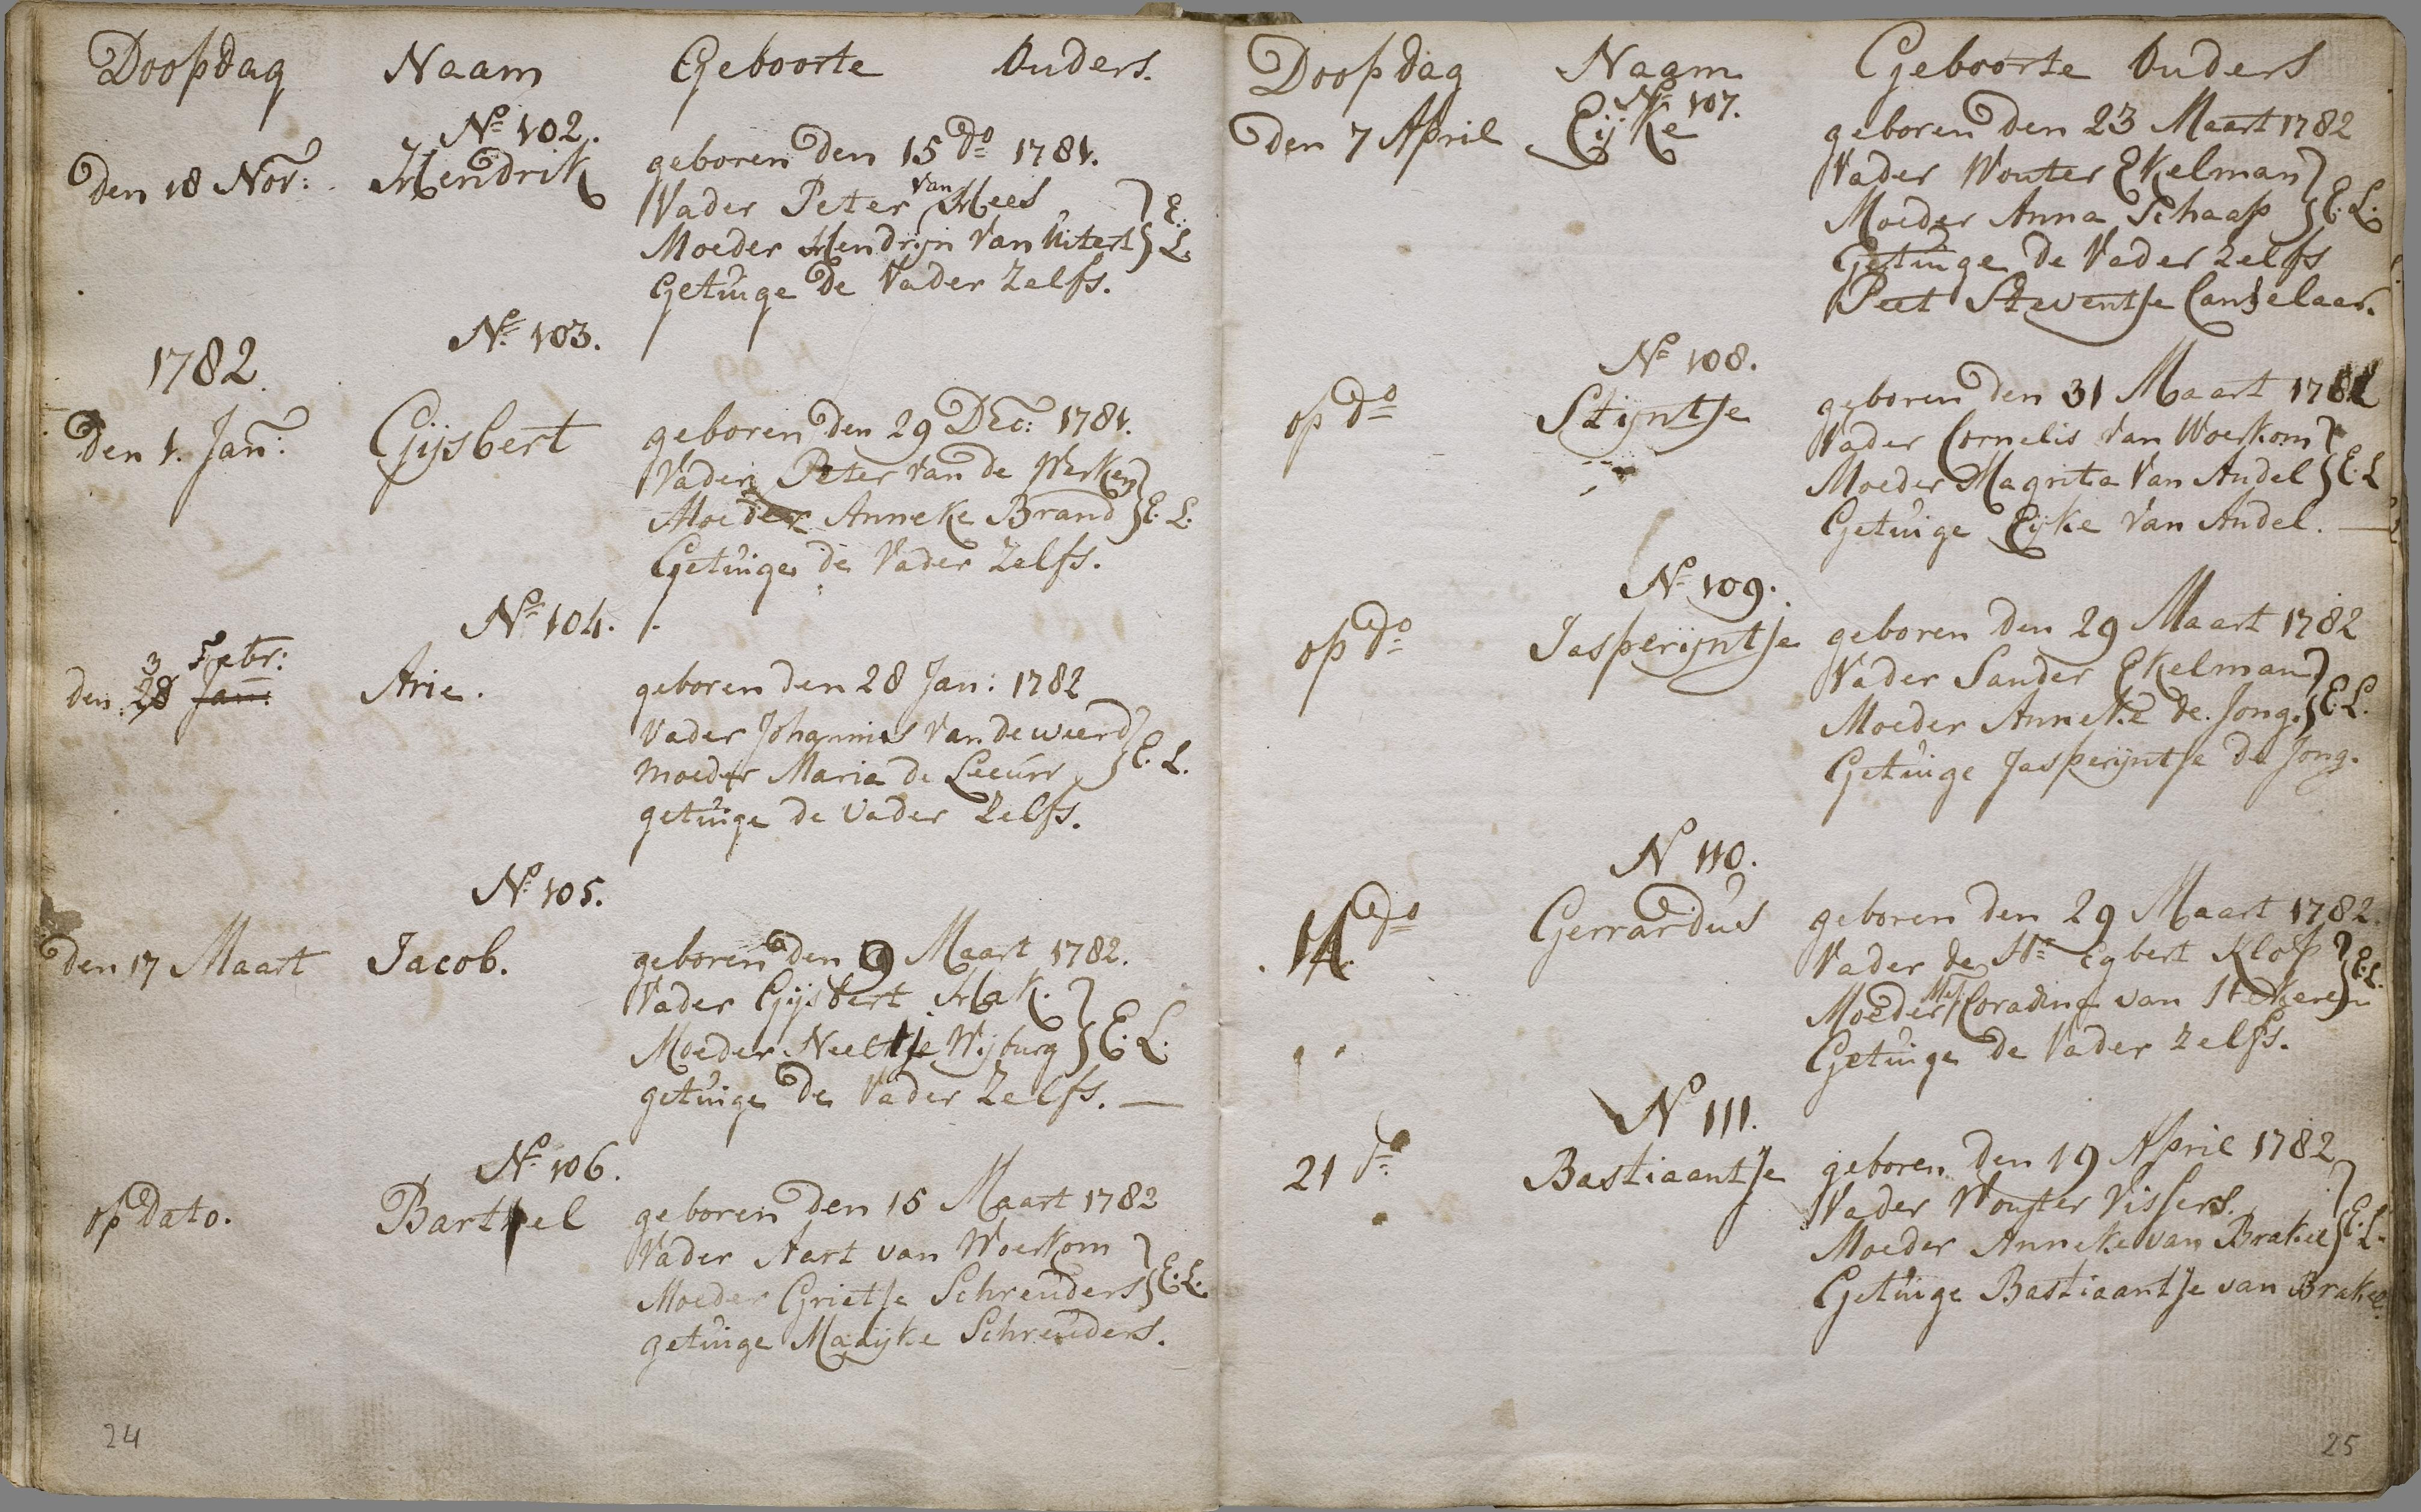 Doopdag Naam Geboorte Ouders.
No 102.
den 18 Nov: Hendrik geboren den 15 do 1781.
Vader Peter van Hees
Moeder Hendrijn van Uitert } E: L.
Getuige de Vader Zelfs.
No 103.
1782.
den 1. Jan: Gijsbert geboren den 29 Dec: 1781.
Vader Peter van de Werken
Moeder Anneke Brand } E. L.
Getuige de Vader Zelfs.
No 104.
3 Febr:
den 28 Jan: Arie. geboren den 28 Jan: 1782
Vader Johannis van de weerd
moeder Maria de Leeuw } E. L.
getuige de Vader Zelfs.
No 105.
den 17 Maart Jacob. geboren den 9 Maart 1782.
Vader Gijsbert Hak.
Moeder Neeltje Wijburg } E. L.
getuige de Vader Zelfs. —
No 106.
op dato. Barthel geboren den 15 Maart 1782
Vader Aart van Woerkom
Moeder Grietje Schreuders } E. L.
getuige Maaijke Schreuders.
24
Doopdag Naam Geboorte Ouders
No 107.
den 7 April Eijke geboren den 23 Maart 1782
Vader Wouter Ekelman
Moeder Anna Schaap } E. L.
Getuige de Vader Zelfs
Peet Steventje Canselaar.
No 108.
op do Stijntje geboren den 31 Maart 1782
Vader Cornelis van Woerkom
Moeder Magrita van Andel } E. L
Getuige Eijke van Andel. —
No 109.
op do Jasperijntje geboren den 29 Maart 1782
Vader Sander Ekelman
Moeder Anneke de Jong. } E. L.
Getuige Jasperijntje de Jong.
No 110.
14 do Gerrardus geboren den 29 Maart 1782.
Vader de Hr Egbert Klop
Moeder Coradina van } E. L.
Getuige de Vader Zelfs.
No 111.
21 do Bastiaantje geboren den 19 April 1782
Vader Wouter Vissers.
Moeder Anneke van Brakel } E. L.
Getuige Bastiaantje van Brakel.
25